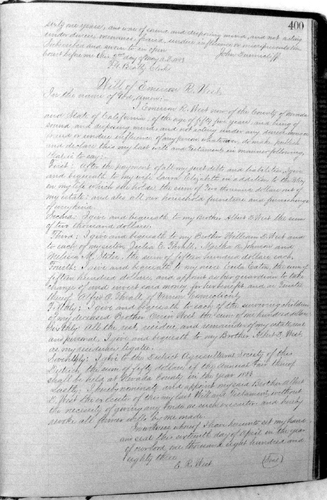 400
sixty one years, and was of sound and disposing mind, and not acting
under duress menaces, fraud, undue influence or misrepresentation
Subscribed and sworn to in open
Court before me this 2nd day of May A.D. 1883
Clerk
Will of Emerson B. West
In the name of God, Amen.
I Emerson B. West of the County of Nevada
and State of California, of the age of fifty four years, and being of
sound and disposing mind, and not acting under any duress, menace
fraud or undue influence of any person whatever, do make, publish
and declare this my last will and testament in manner following,
that is to say:
First: After the payment of all my just debts and liabilities I give
and bequeath to my wife Laura Elizabeth in addition to the Policy
on my life which she holds the sum of Ten thousand dollars out of
my estate: and also all our household furniture and furnishings
of every kind.
Second: I give and bequeath to my Brother Albert O. West the sum
of two thousand dollars.
Third: I give and bequeath to my Brother William O. West and
to each of my sisters Julia E. Thrall, Martha Johnson and
the sum of fifteen hundred dollars each.
Fourth: I give and bequeath to my niece the sum of
fifteen hundred dollars, and appoint as her guardian to take
charge of and invest said money for her
of Vernon Connecticut
Fifthly: I give and bequeath to each of the surviving children
of my deceased Brother West the sum of one hundred dollars
Sixthly: All the rest, residue and remainder of my estate real
and personal, I give and bequeath to my Brother Albert O. West
as my residuary legatee.
Seventhly: I give to the District Agricultural Society of this
District the sum of fifty dollars if the Annual Fair thereof
shall be held at Nevada County in the year 1883
Lastly: I hereby nominate and appoint my said Brother Albert
O. West the executor of this my last Will and Testament without
the necessity of giving any bonds as such executor and hereby
revoke all former wills by me made.
In witness whereof I have hereunto set my hand
and seal this sixteenth day of April in the year
of our Lord one thousand eight hundred and
eighty three
E. B. West (Seal)